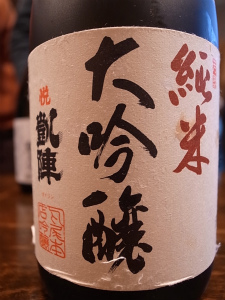 純米
大吟醸
悦
凱陣